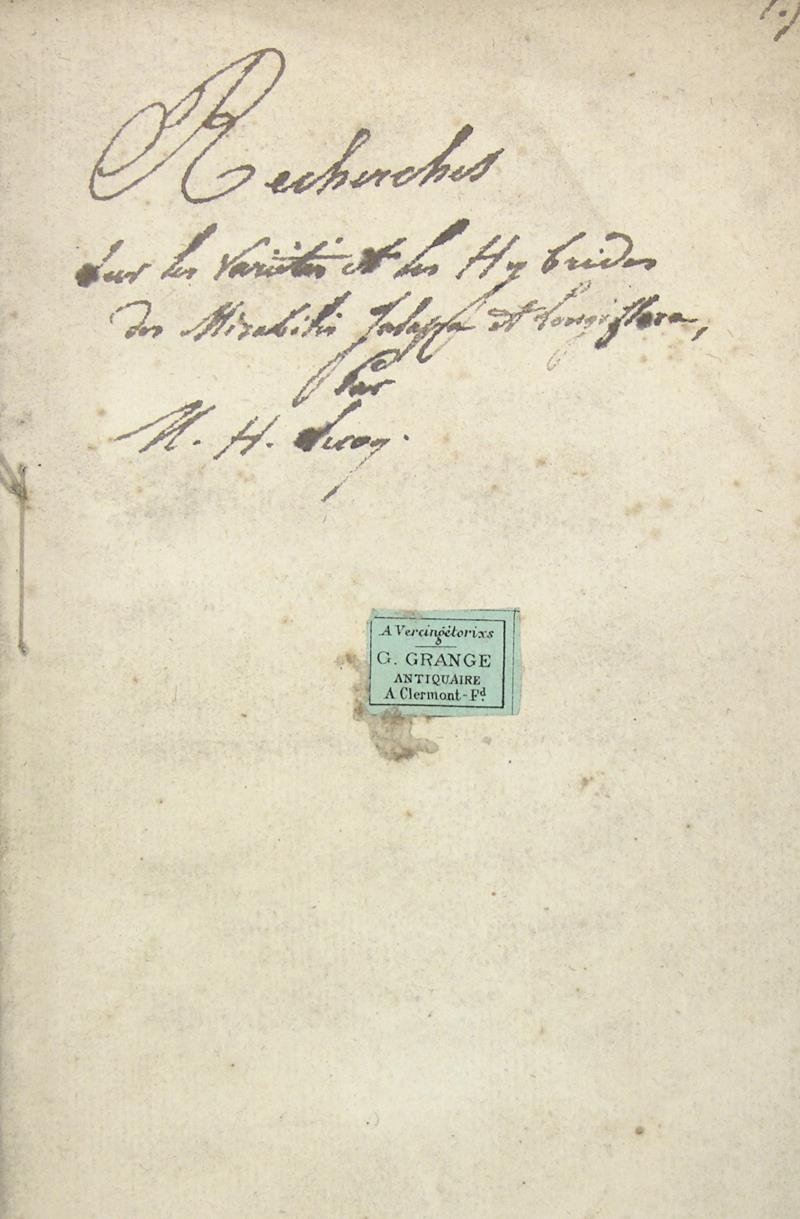 Recherches
Sur les Variétés et les Hybrides
des Mirabilis Jalappa et Longiflora,
Par
M. H. Lecoq.
A Vercingétorixs
G. GRANGE
ANTIQUAIRE
A Clermont-Fd.